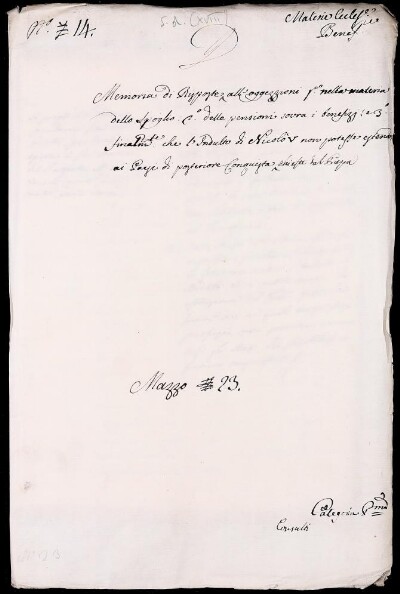 N.º # 14.
S. d. [XVIII]
Materie Eccles.e
Benef
Memoria di Risposte all'oggezzioni p.º nella materia
dello Spoglio 2.º della pensioni sovra i benefizj: e 3º
finalm.te che l'Indulto di Nicolò V non potesse estendersi
ai Paesi di posteriore Conquista
Mazzo # 23.
Categoria P.ma
Consulti